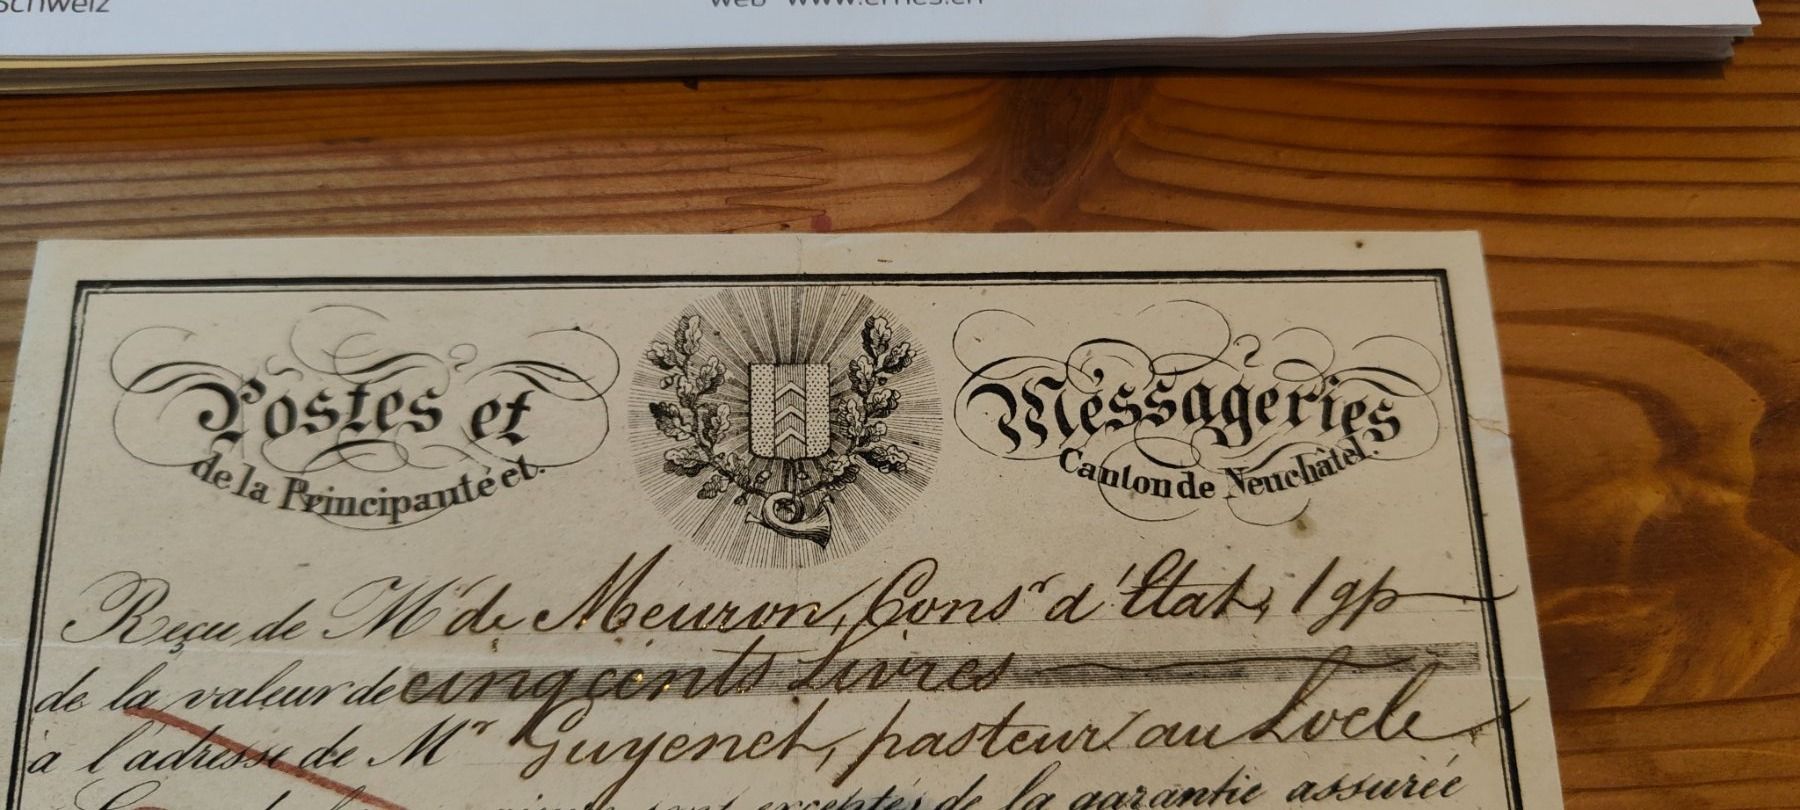 Schweiz
Postes et
de la Principauté et.
Méssageries
Canton de Neuchâtel.
Reçu de Mr de Meuron, Consr d'Etat, 1 gp
de la valeur de cinq cents Livres
à l'adresse de Mr Guyenet, pasteur au Locle
sont exceptés de la garantie assurée